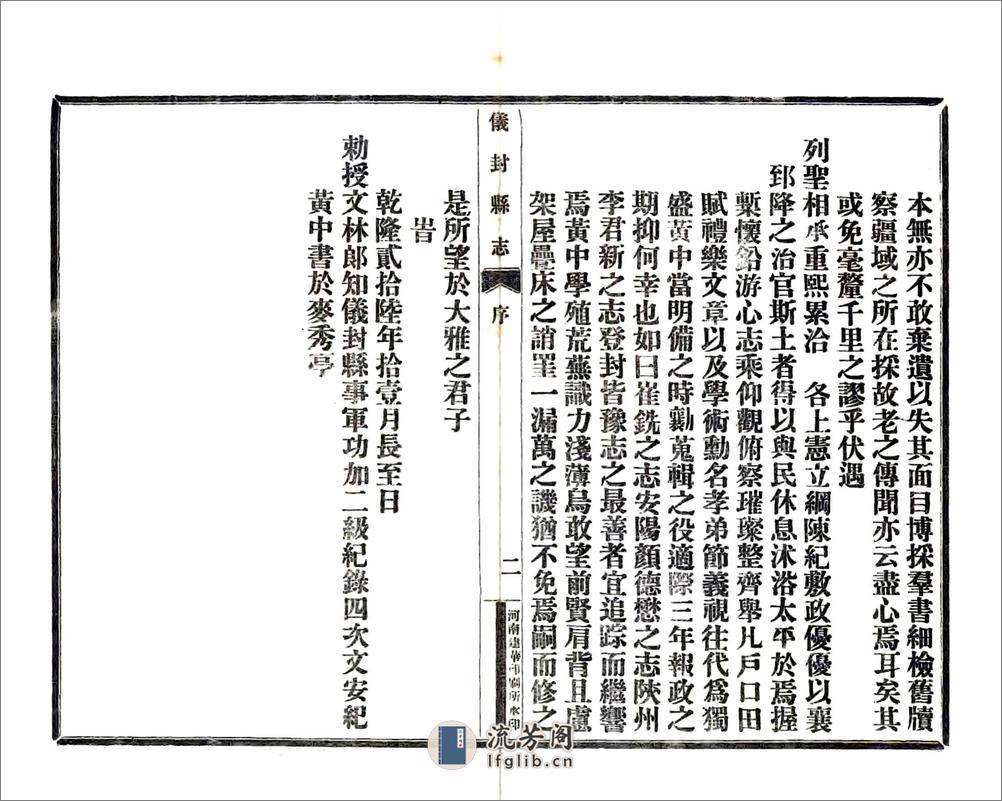 本無亦不敢棄遺以失其面目博採羣書細檢舊牘
察疆域之所在採故老之傳聞亦云盡心焉耳矣其
或免毫釐千里之謬乎伏遇
列聖相承重熙累洽　各上憲立綱陳紀敷政優優以襄
郅隆之治官斯土者得以與民休息沐浴太平於焉握
槧懷鉛游心志乘仰觀俯察璀璨整齊舉凡戶口田
賦禮樂文章以及學術勳名孝弟節義視往代爲獨
盛黃中當明備之時勷蒐輯之役適際三年報政之
期抑何幸也如曰崔銑之志安陽顏德懋之志陝州
李君新之志登封皆豫志之最善者宜追踪而繼響
焉黃中學殖荒蕪識力淺薄烏敢望前賢肩背且慮
架屋疊床之誚罣一漏萬之譏猶不免焉嗣而修之
儀封縣志
序
二
河南建華印刷所承印
是所望於大雅之君子
旹
乾隆貳拾陸年拾壹月長至日
勅授文林郎知儀封縣事軍功加二級紀錄四次文安紀
黃中書於麥秀亭
流芳阁
lfglib.cn